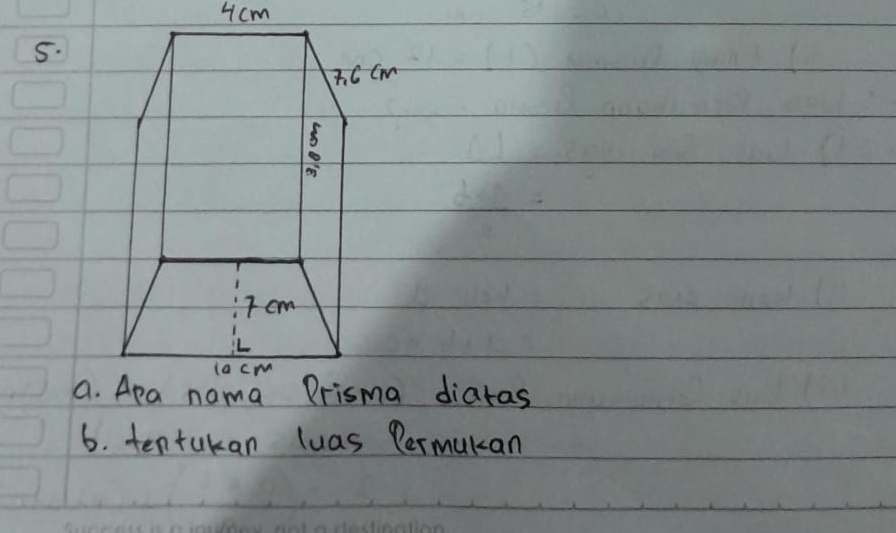 4 cm
5.
7,6 cm
7 cm
10 cm
a. Apa nama Prisma diatas
b. tentukan luas Permukan
Success is a journey, not a destination